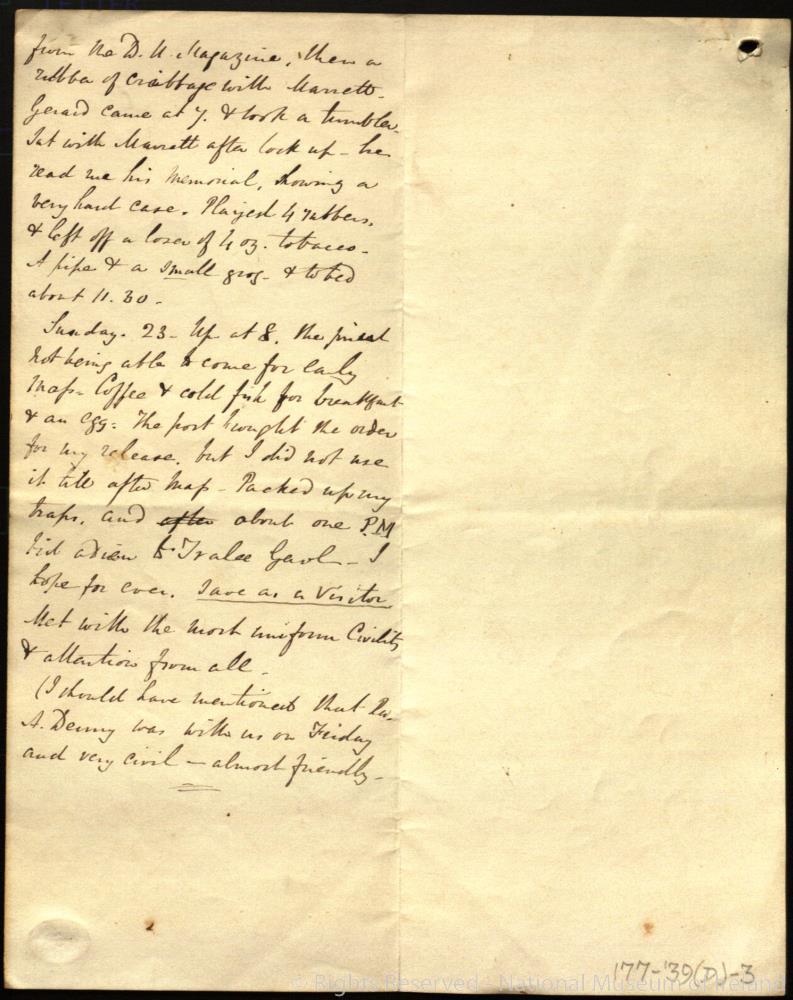 from the D. U. Magazine, then a
rubber of cribbage with Marrett.
Gerard came at 7. & took a tumbler.
Sat with Marrett after lock up - he
read me his Memorial, showing a
very hard case. Played 4 rubbers,
& left off a loser of 4 oz. tobacco -
A pipe & a small grog - & to bed
about 11.30 -
Sunday. 23 - Up at 8. the priest
not being able to come for early
Mass - Coffee & cold fish for breakfast
& an egg: The post brought the order
for my release, but I did not use
it till after Mass - Packed up my
traps, and after about one P.M
bid adieu to Tralee Gaol - I
hope for ever. save as a Visitor
Met with the most uniform Civility
& attention from all.
(I should have mentioned that
A. Denny was with us on Friday
and very civil - almost friendly -
177-'39(D)-3
© Rights Reserved - National Museum of Ireland